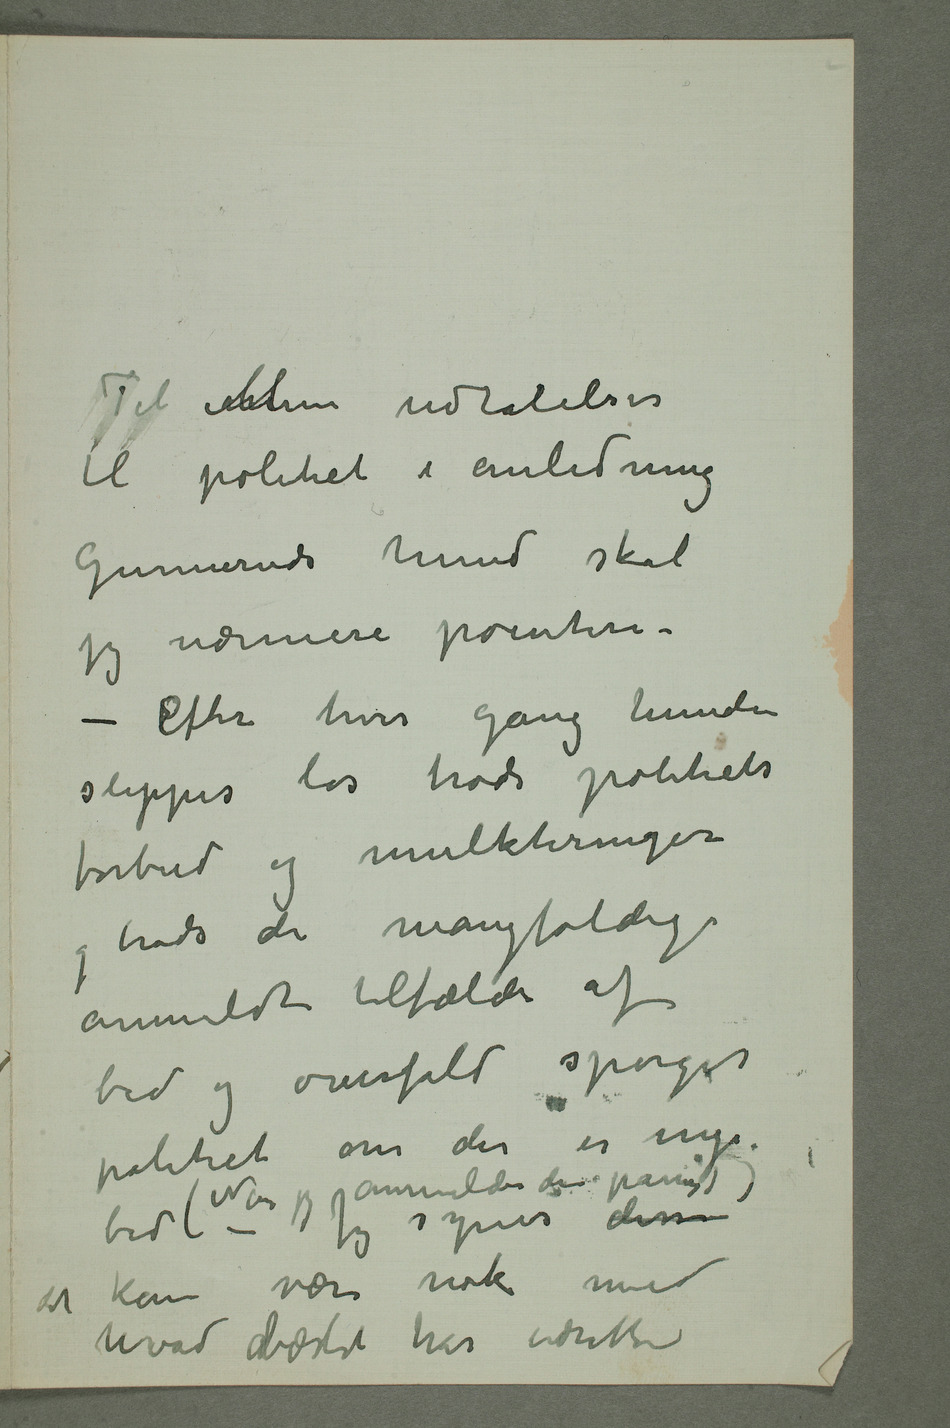 Til  udtalelser
til politiet i anledning
Gunneruds hund skal
jeg nærmere pointere –
– Efter hver gang hunden
slippes løs trods politiets
forbud og mulkteringer
og trods de mangfoldige
anmeldte tilfælde af
bid og overfald spørger
politiet om der er nye
(Når jeg anmelder den påny)
bid – Jeg synes denne
det kan være nok med
hvad bæstet har udrettet